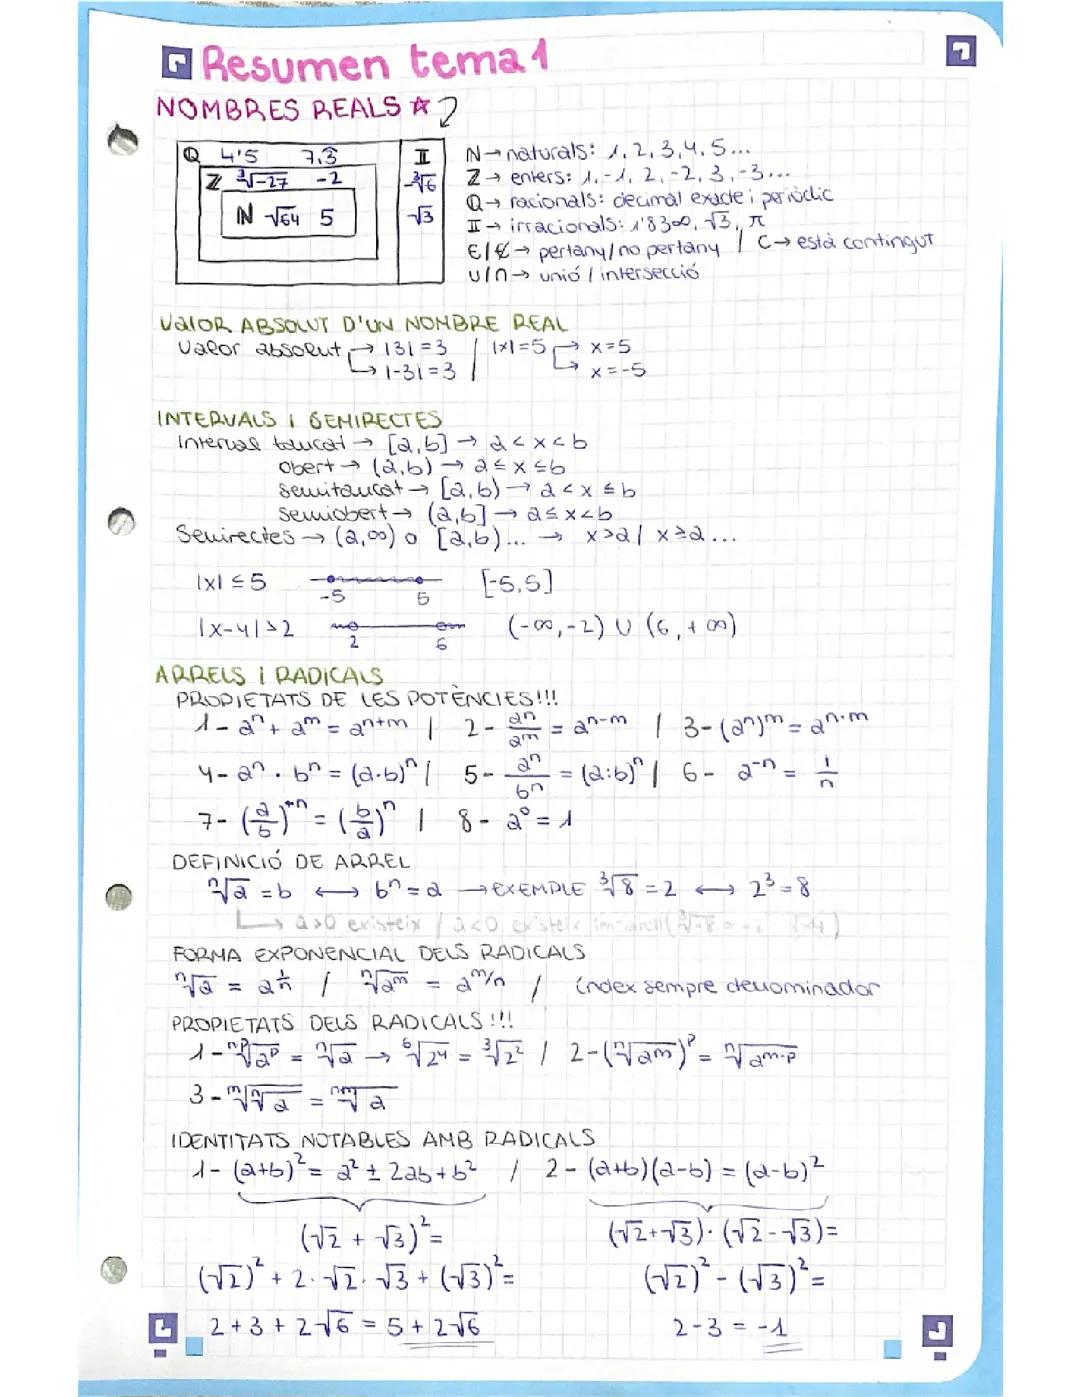 Resumen tema 1
NOMBRES REALS ☆
Q 4'5 7,3̂ II
Z ∛-27 -2 -∛6
N √64 5 √3
N → naturals: 1, 2, 3, 4, 5...
Z → enters: 1, -1, 2, -2, 3, -3...
Q → racionals: decimal exacte i periòdic
II → irracionals: 1'8300, √3, π
∈/∉ → pertany/no pertany / C → està contingut
∪/∩ → unió / intersecció
VALOR ABSOLUT D'UN NOMBRE REAL
Valor absolut → |3| = 3 / |x| = 5 → x = 5
↳ |-3| = 3 ↳ x = -5
INTERVALS I SEMIRECTES
Interval tancat → [a,b] → a < x < b
obert → (a,b) → a ≤ x ≤ b
semitancat → [a,b) → a < x ≤ b
semiobert → (a,b] → a ≤ x < b
Semirectes → (a,∞) o [a,b)... → x>a / x≥a...
|x| ≤ 5 -5 5 [-5,5]
|x-4| > 2 2 6 (-∞,-2) U (6,+∞)
ARRELS I RADICALS
PROPIETATS DE LES POTÈNCIES!!!
1 - aⁿ + aᵐ = aⁿ⁺ᵐ | 2 - aⁿ/aᵐ = aⁿ⁻ᵐ | 3 - (aⁿ)ᵐ = aⁿ·ᵐ
4 - aⁿ · bⁿ = (a·b)ⁿ | 5 - aⁿ/bⁿ = (a:b)ⁿ | 6 - a⁻ⁿ = 1/n
7 - (a/b)⁻ⁿ = (b/a)ⁿ | 8 - a⁰ = 1
DEFINICIÓ DE ARREL
ⁿ√a = b ⟷ bⁿ = a → EXEMPLE ∛8 = 2 ⟷ 2³ = 8
↳ a>0 existeix / a<0 existeix
FORMA EXPONENCIAL DELS RADICALS
ⁿ√a = a^1/n / ⁿ√aᵐ = a^m/n / índex sempre denominador
PROPIETATS DELS RADICALS!!!
1 - ⁿᵖ√aᵖ = ⁿ√a → ⁶√2⁴ = ³√2² / 2 - (ⁿ√aᵐ)ᵖ = ⁿ√aᵐ·ᵖ
3 - ᵐ√ⁿ√a = ⁿᵐ√a
IDENTITATS NOTABLES AMB RADICALS
1 - (a+b)² = a² ± 2ab + b² / 2 - (a+b)(a-b) = (a-b)²
(√2 + √3)² = (√2+√3)·(√2-√3) =
(√2)² + 2·√2·√3 + (√3)² = (√2)² - (√3)² =
2 + 3 + 2√6 = 5 + 2√6 2 - 3 = -1